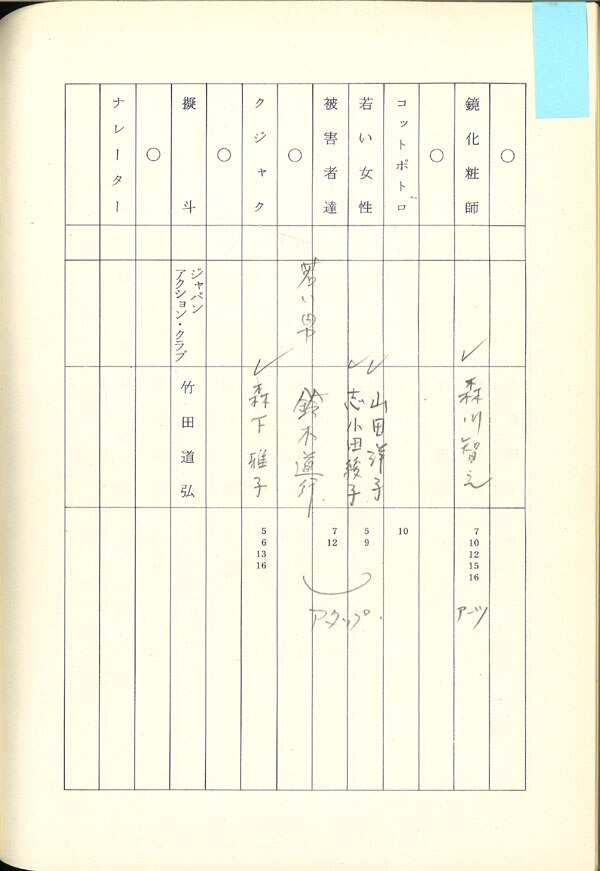 ○
鏡化粧師
森川智之
7
10
12
15
16
アーツ
○
コットポトロ
10
若い女性
山田洋子
志小田綾子
5
9
被害者達
7
12
若い男
鈴木道行
アクタップ
○
クジャク
森下雅子
5
6
13
16
○
擬斗
ジャパン
アクション・クラブ
竹田道弘
○
ナレーター